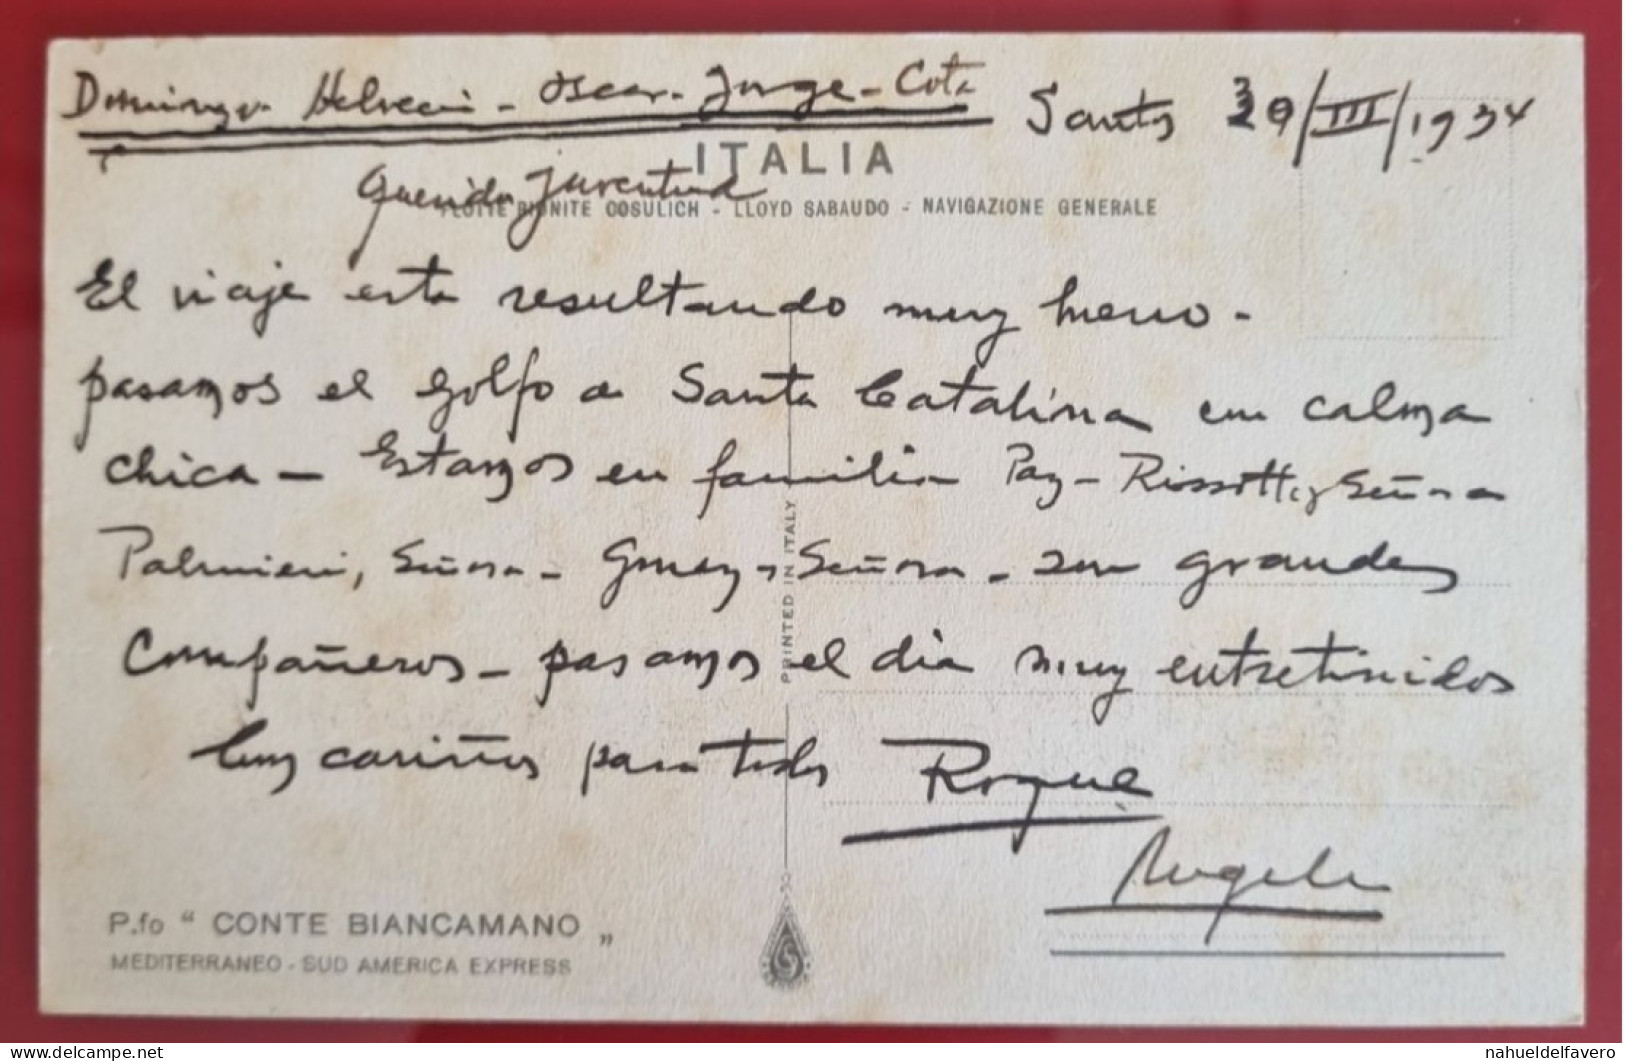 Domingo - Helvecia - Oscar - Jorge - Cota
Santos 29/III/1934
ITALIA
Querida Juventud
FLOTTE RIUNITE COSULICH - LLOYD SABAUDO - NAVIGAZIONE GENERALE
El viaje esta resultando muy bueno -
pasamos el golfo a Santa Catalina em calma
chica - Estamos en familia Paz - Rissotto, y Señora
Palmieri, Señora - Gomez y Señora - son grandes
Compañeros - pasamos el dia muy entretenidos
cariños para todos Roque
Angela
PRINTED IN ITALY
P.fo “ CONTE BIANCAMANO „
MEDITERRANEO - SUD AMERICA EXPRESS
delcampe.net
nahueldelfavero